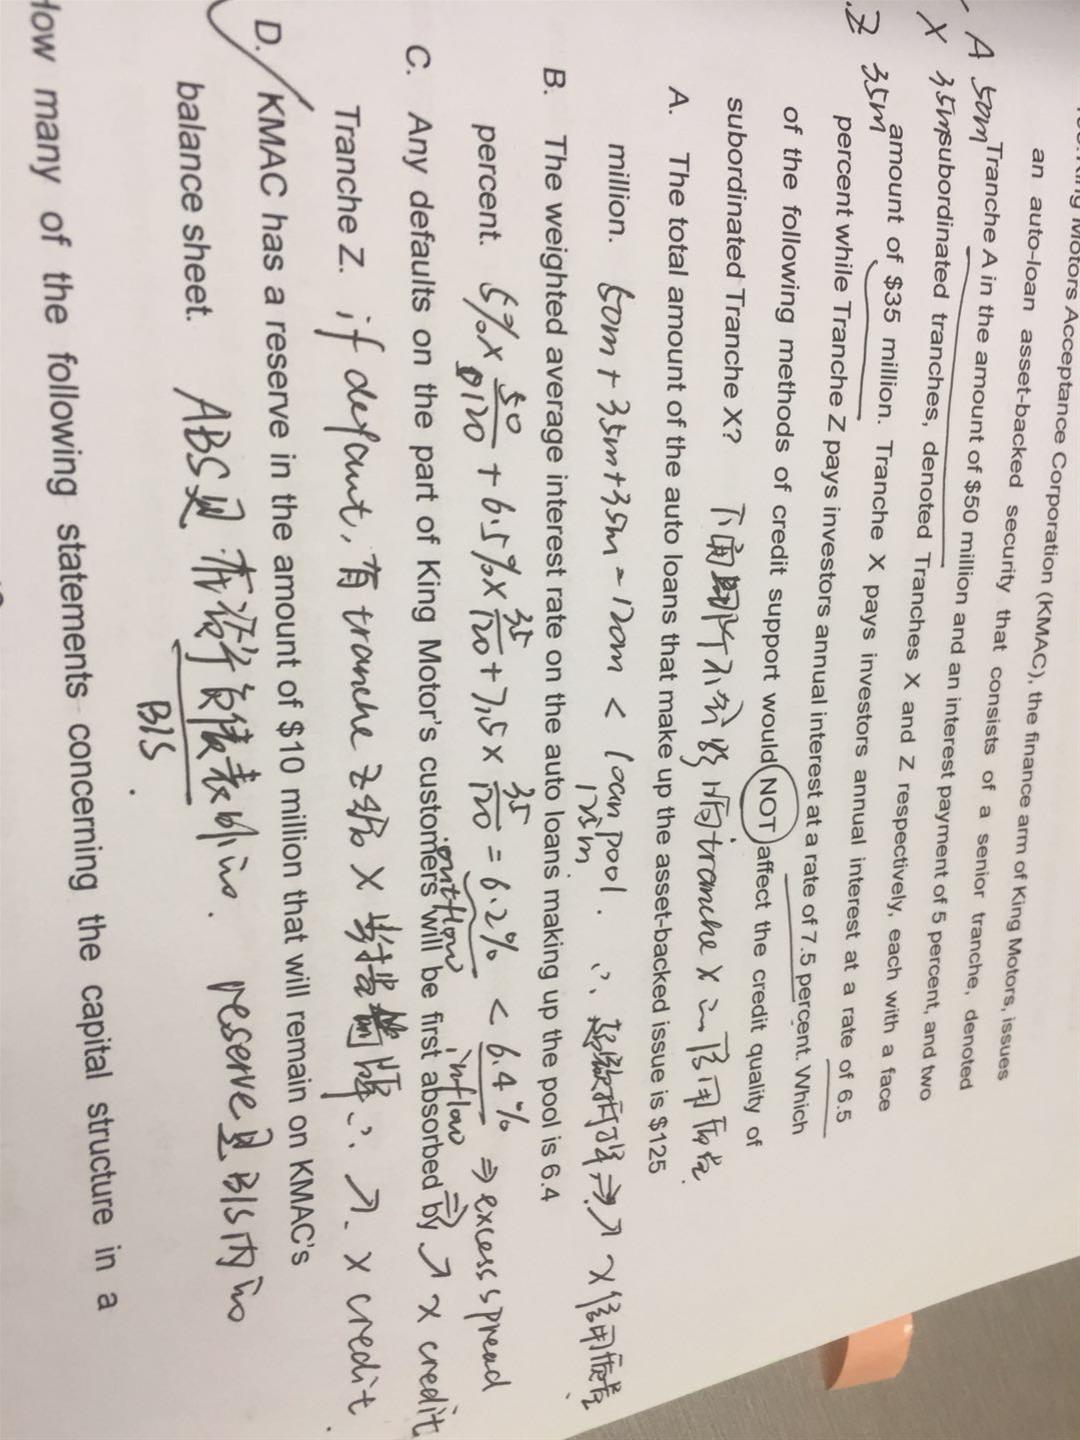 Motors Acceptance Corporation (KMAC), the finance arm of King Motors, issues
an auto-loan asset-backed security that consists of a senior tranche, denoted
A 50m Tranche A in the amount of $50 million and an interest payment of 5 percent, and two
X 35m subordinated tranches, denoted Tranches X and Z respectively, each with a face
Z 35m amount of $35 million. Tranche X pays investors annual interest at a rate of 6.5
percent while Tranche Z pays investors annual interest at a rate of 7.5 percent. Which
of the following methods of credit support would NOT affect the credit quality of
subordinated Tranche X? tranche X 信用质量
A. The total amount of the auto loans that make up the asset-backed issue is $125
million. 50m + 35m + 35m = 120m < loan pool. ∴ 超额抵押 ⇒ ↗ X 信用质量
125m
B. The weighted average interest rate on the auto loans making up the pool is 6.4
percent. 5% × 50/120 + 6.5% × 35/120 + 7.5 × 35/120 = 6.2% < 6.4% ⇒ excess spread
outflow inflow ⇒ ↗ X credit
C. Any defaults on the part of King Motor's customers will be first absorbed by
Tranche Z. if defaut, 有 tranche Z 给 X ∴ ↗. X credit.
D. KMAC has a reserve in the amount of $10 million that will remain on KMAC's
balance sheet. ABS 是 表外的. reserve 是 B/S 内的
B/S.
How many of the following statements concerning the capital structure in a